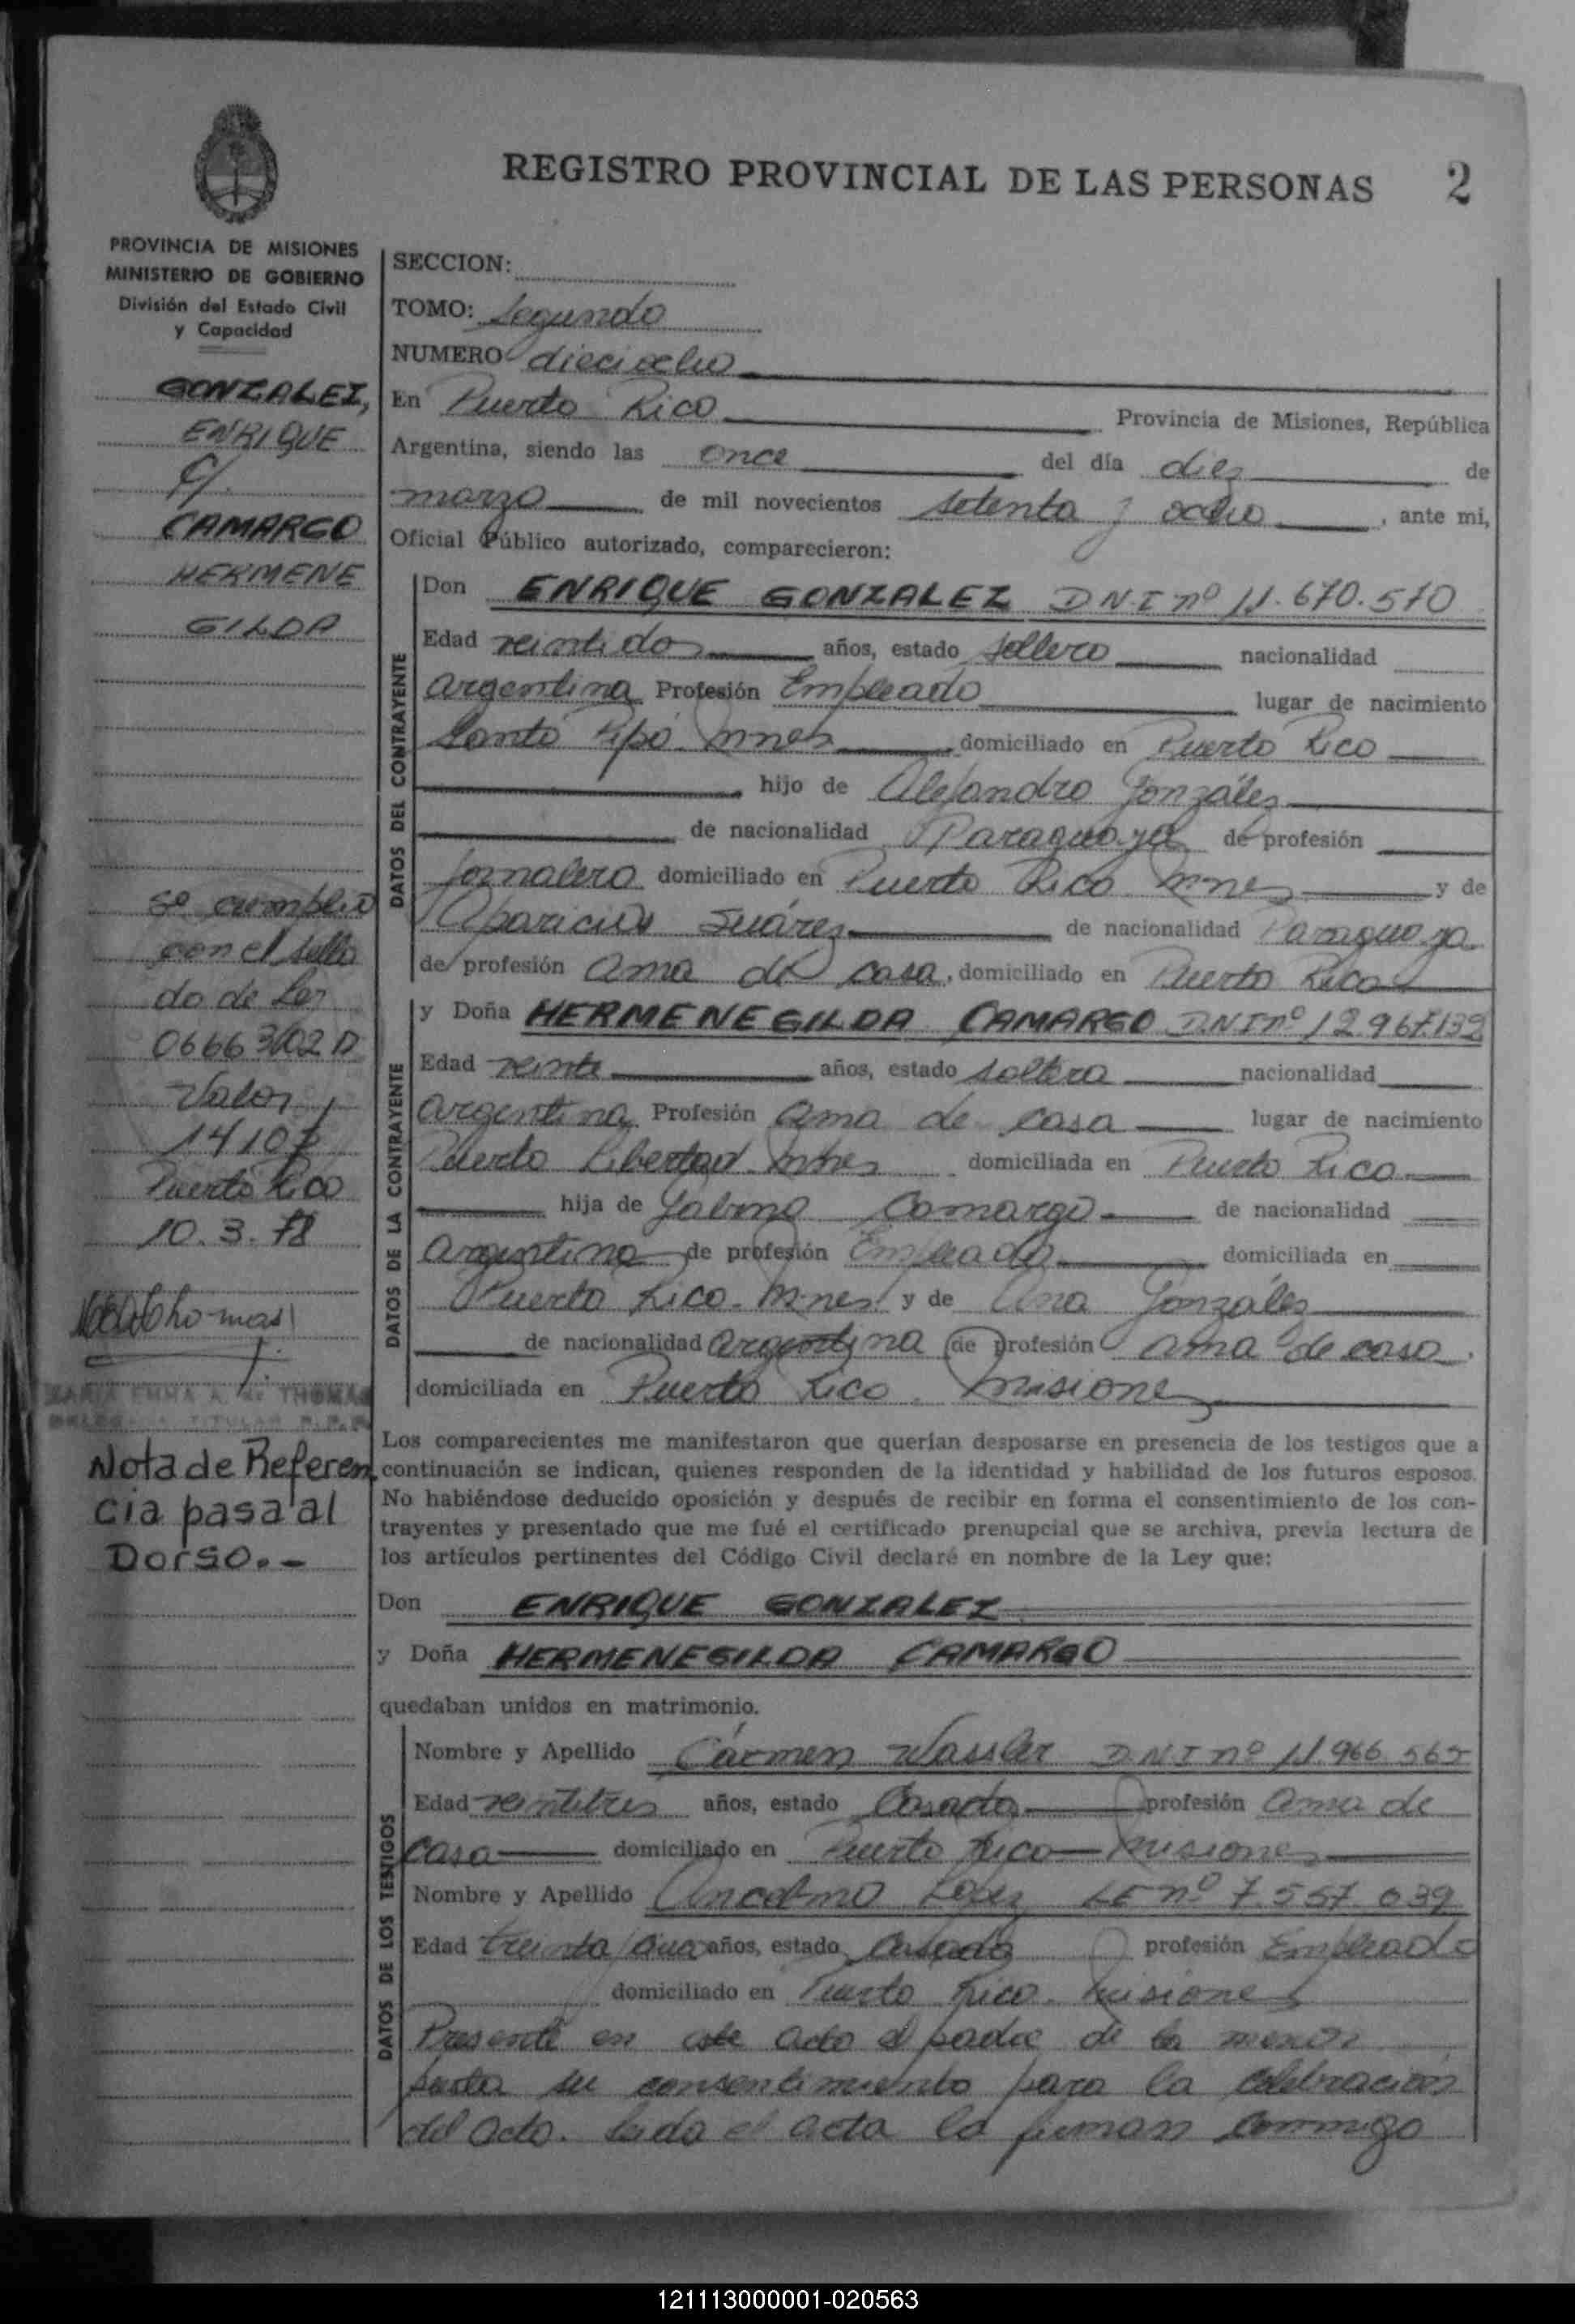 REGISTRO PROVINCIAL DE LAS PERSONAS 2
PROVINCIA DE MISIONES
MINISTERIO DE GOBIERNO
División del Estado Civil
y Capacidad
GONZALEZ,
ENRIQUE
c/.
CAMARGO
HERMENE
GILDA
se cumplio
con el sella
do de Ley
Valor
14107
Puerto Rico
10.3.78
MARIA EMMA A. de THOMAS
DELEGADA TITULAR R.P.P.
Nota de Referen
cia pasa al
Dorso.-
SECCION:
TOMO: Segundo
NUMERO dieciocho
En Puerto Rico Provincia de Misiones, República
Argentina, siendo las once del día diez de
marzo de mil novecientos setenta y ocho, ante mi,
Oficial Público autorizado, comparecieron:
DATOS DEL CONTRAYENTE
Don ENRIQUE GONZALEZ DNI nº 11.670.510
Edad veintidos años, estado soltero nacionalidad
argentina Profesión Empleado lugar de nacimiento
Santo Pipó Mnes domiciliado en Puerto Rico
hijo de Alejandro Gonzáles
de nacionalidad Paraguaya de profesión
Jornalero domiciliado en Puerto Rico Mnes y de
Aparicia Suárez de nacionalidad Paraguaya
de profesión ama de casa, domiciliado en Puerto Rico
DATOS DE LA CONTRAYENTE
y Doña HERMENEGILDA CAMARGO DNI nº 12.967.139
Edad veinte años, estado soltera nacionalidad
argentina Profesión ama de casa lugar de nacimiento
Puerto Libertad Mnes domiciliada en Puerto Rico
hija de Camargo de nacionalidad
argentina de profesión Empleado domiciliada en
Puerto Rico. Mnes y de Ana Gonzáles
de nacionalidad argentina de profesión ama de casa.
domiciliada en Puerto Rico. Misiones
Los comparecientes me manifestaron que querían desposarse en presencia de los testigos que a
continuación se indican, quienes responden de la identidad y habilidad de los futuros esposos.
No habiéndose deducido oposición y después de recibir en forma el consentimiento de los con-
trayentes y presentado que me fué el certificado prenupcial que se archiva, previa lectura de
los artículos pertinentes del Código Civil declaré en nombre de la Ley que:
Don ENRIQUE GONZALEZ
y Doña HERMENEGILDA CAMARGO
quedaban unidos en matrimonio.
DATOS DE LOS TESTIGOS
Nombre y Apellido Cármen Wassler DNI nº 11.966.565
Edad veintitres años, estado Casada profesión ama de
casa domiciliado en Puerto Rico Misiones
Nombre y Apellido Ancelmo Lopez LE nº 7.557.039
Edad treinta años, estado casado profesión Empleado
domiciliado en Puerto Rico. Misiones
Presente en este acto el padre de la menor
presta su consentimiento para la celebración
del acto. Leída el acta la firman conmigo
121113000001-020563